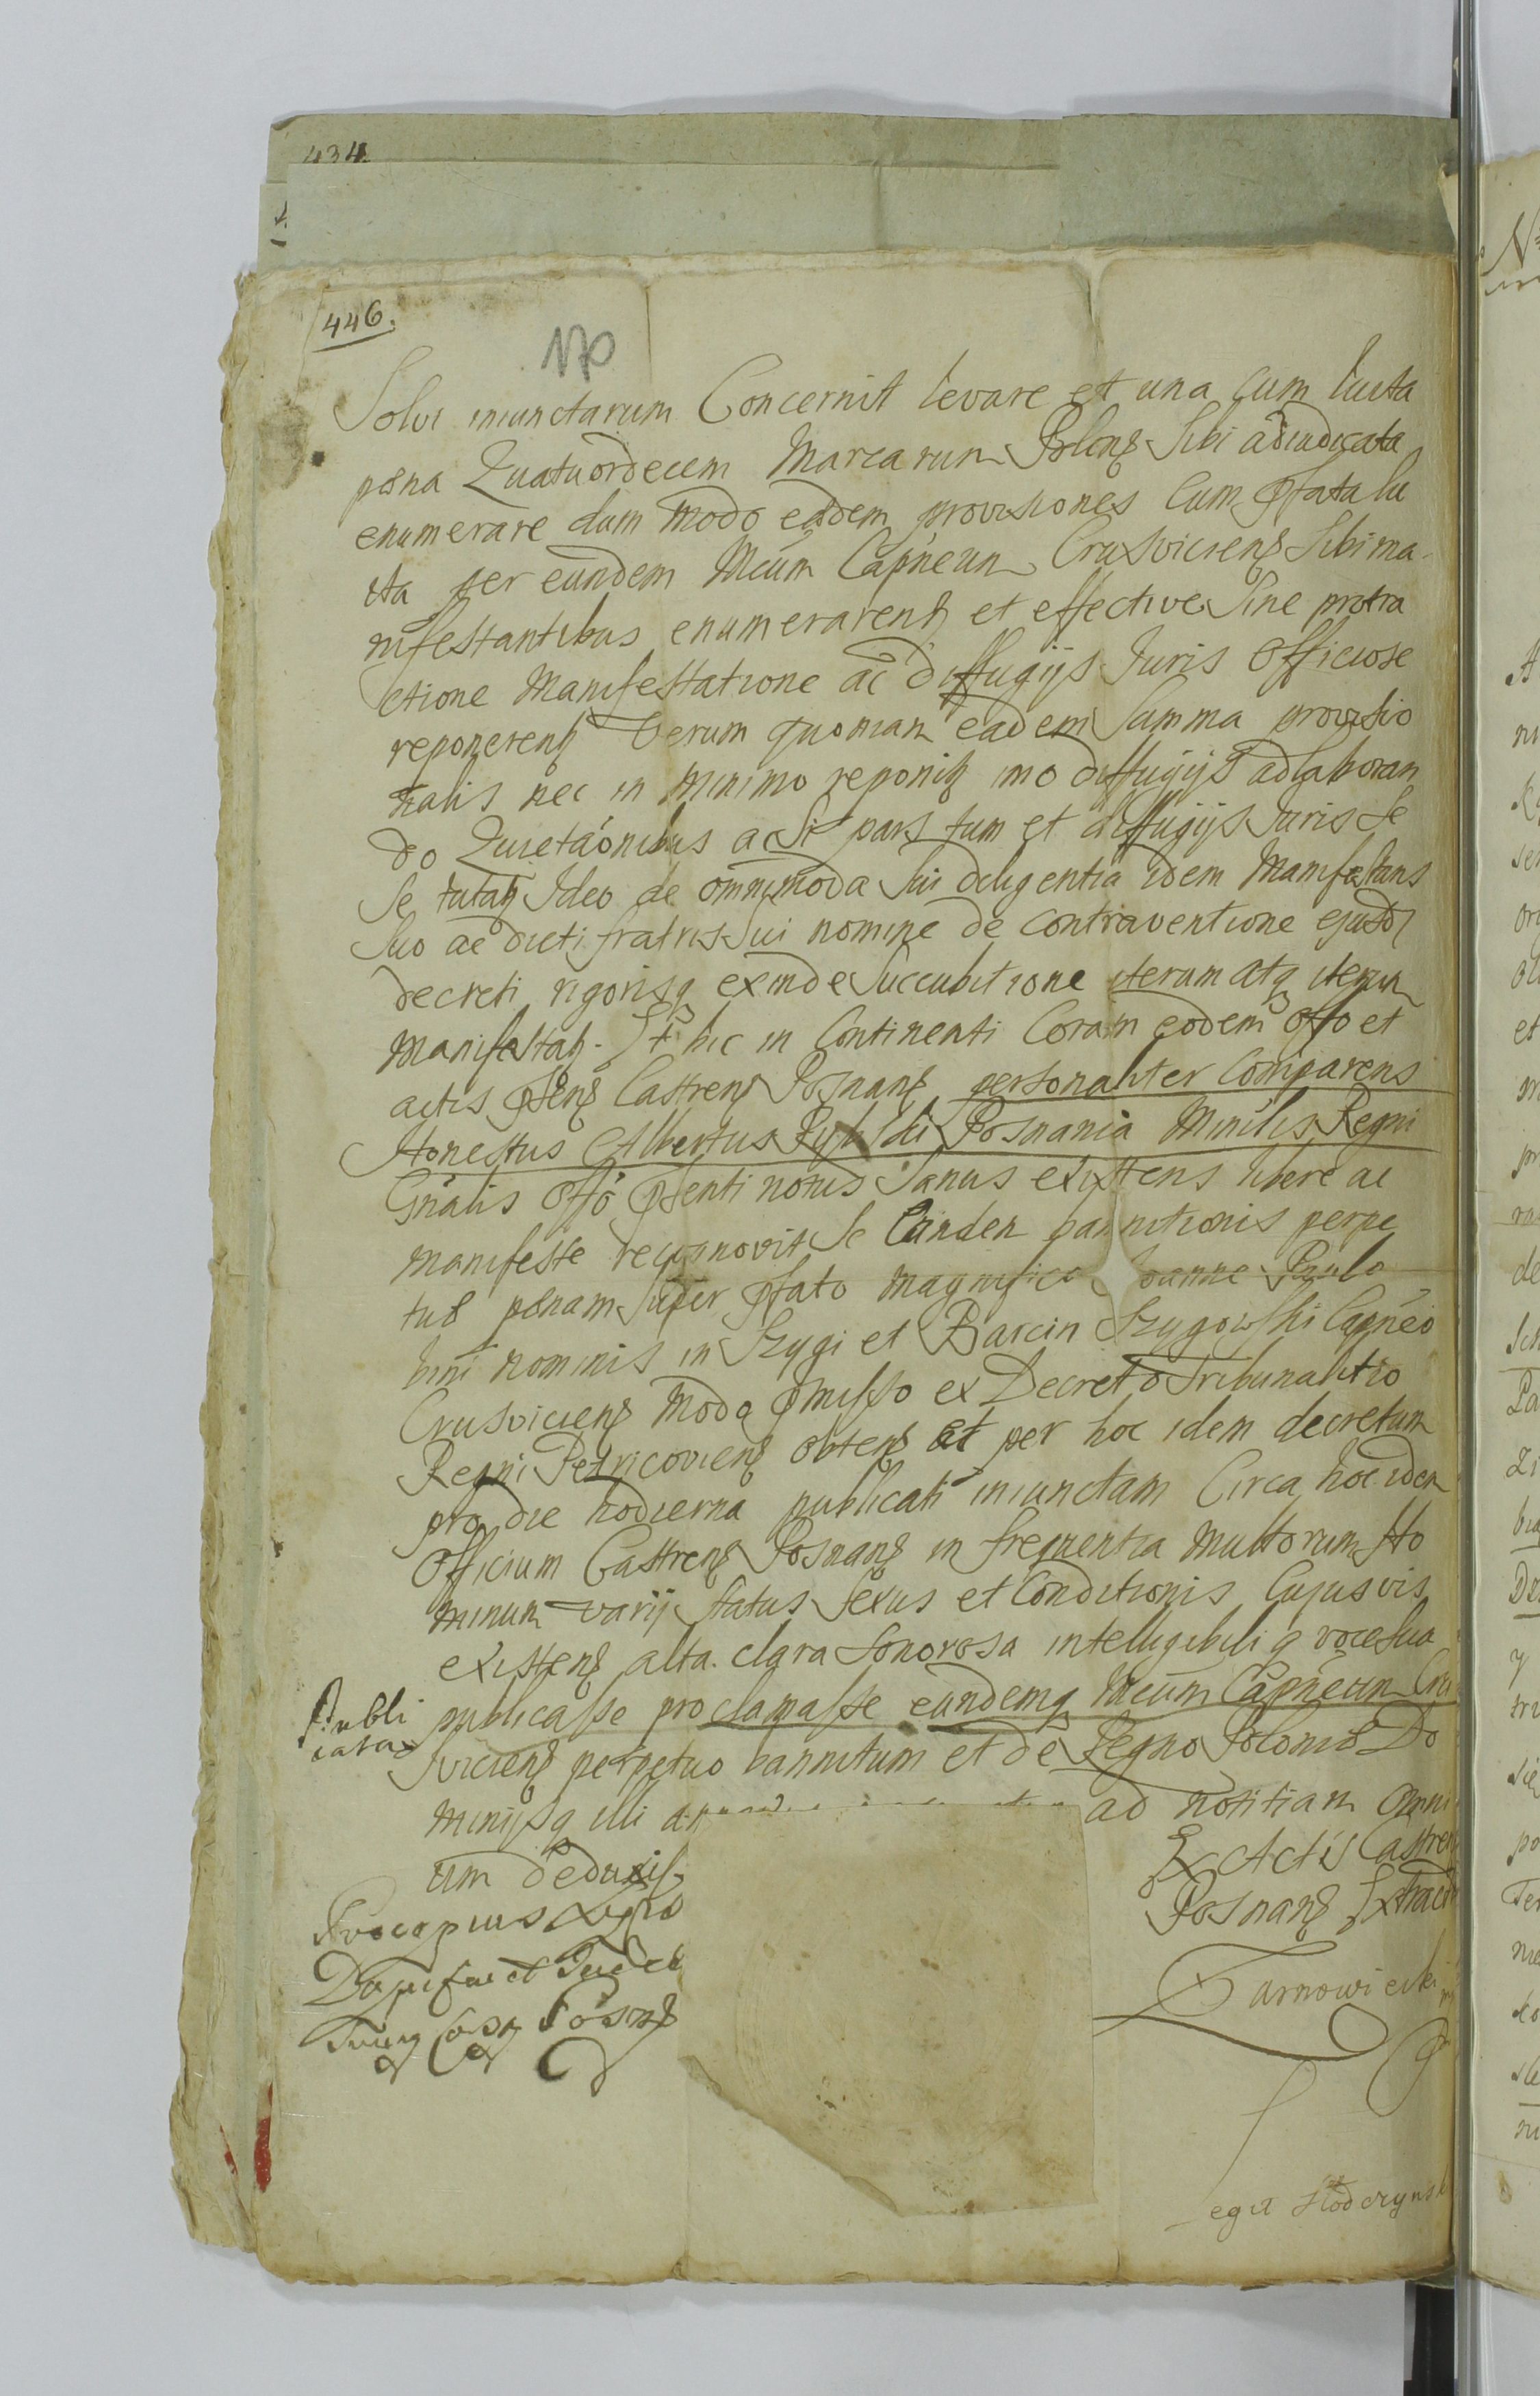 434.
446.
170
Solvi iniunctarum Concernit levare et una Cum lucta
pœna Quatuordecem Marcarum Polonς Sibi adiudicata
enumerare dum modo eœdem provisiones Cum pfata lu
cta per eundem Mcum Capneum Crusvicienς Sibi ma
nifestantibus enumerarentʒ et effective Sine protra
ctione Manifestatione ac diffugijs Juris Officiose
reponerentʒ Verum quoniam eadem Summa provisio
nalis nec in minimo reponitʒ imo diffugijs adlaboran
do Quietaonibus ac Si pars tum et diffugijs Juris Se
Se tutatʒ Ideo de omnimoda Sui diligentia idem Manifestans
Suo ac dicti fratris Sui nomine de contraventione ejusdʒ
decreti rigorisqʒ exinde Succubitione iterum atqʒ iterum
Manifestatʒ. Et hic in Continenti Coram eodem Offo et
actis psenς Castrenς Posnanς personaliter Comparens
Honestus Albertus Rybski Posnania Minilis Regni
Gnalis Offo psenti notus Sanus existens libere ac
manifeste recognovit Se Eandem bannitionis perpe
tuæ pœnam Super pfato Magnifico Joanne Paulo
bini nominis in Szygi et Barcin Szygowski Capneo
Crusvicienς modo pmisso ex Decreto Tribunalitio
Regni Petricovienς obtenς et per hoc idem decretum
pro die hodierna publicari iniunctam Circa hoc idem
Officium Castrenς Posnanς in frequentia multorum Ho
minum varij Status Sexus et Conditionis Cujusvis
existenς alta clara Sonorosa intelligibili qʒ voce Sua
Publi
cata
publicasse proclamasse eundemqʒ Mcum Capneum Cru
Svicienς perpetuo bannitum et de Regno Poloniæ Do
minijsqʒ illi ad notitiam Omni
um deduxisse
Ex Actis Castren
Posnanς Extract
Procopius
Dapifer et Judex
Posnς
Tarnowiecki